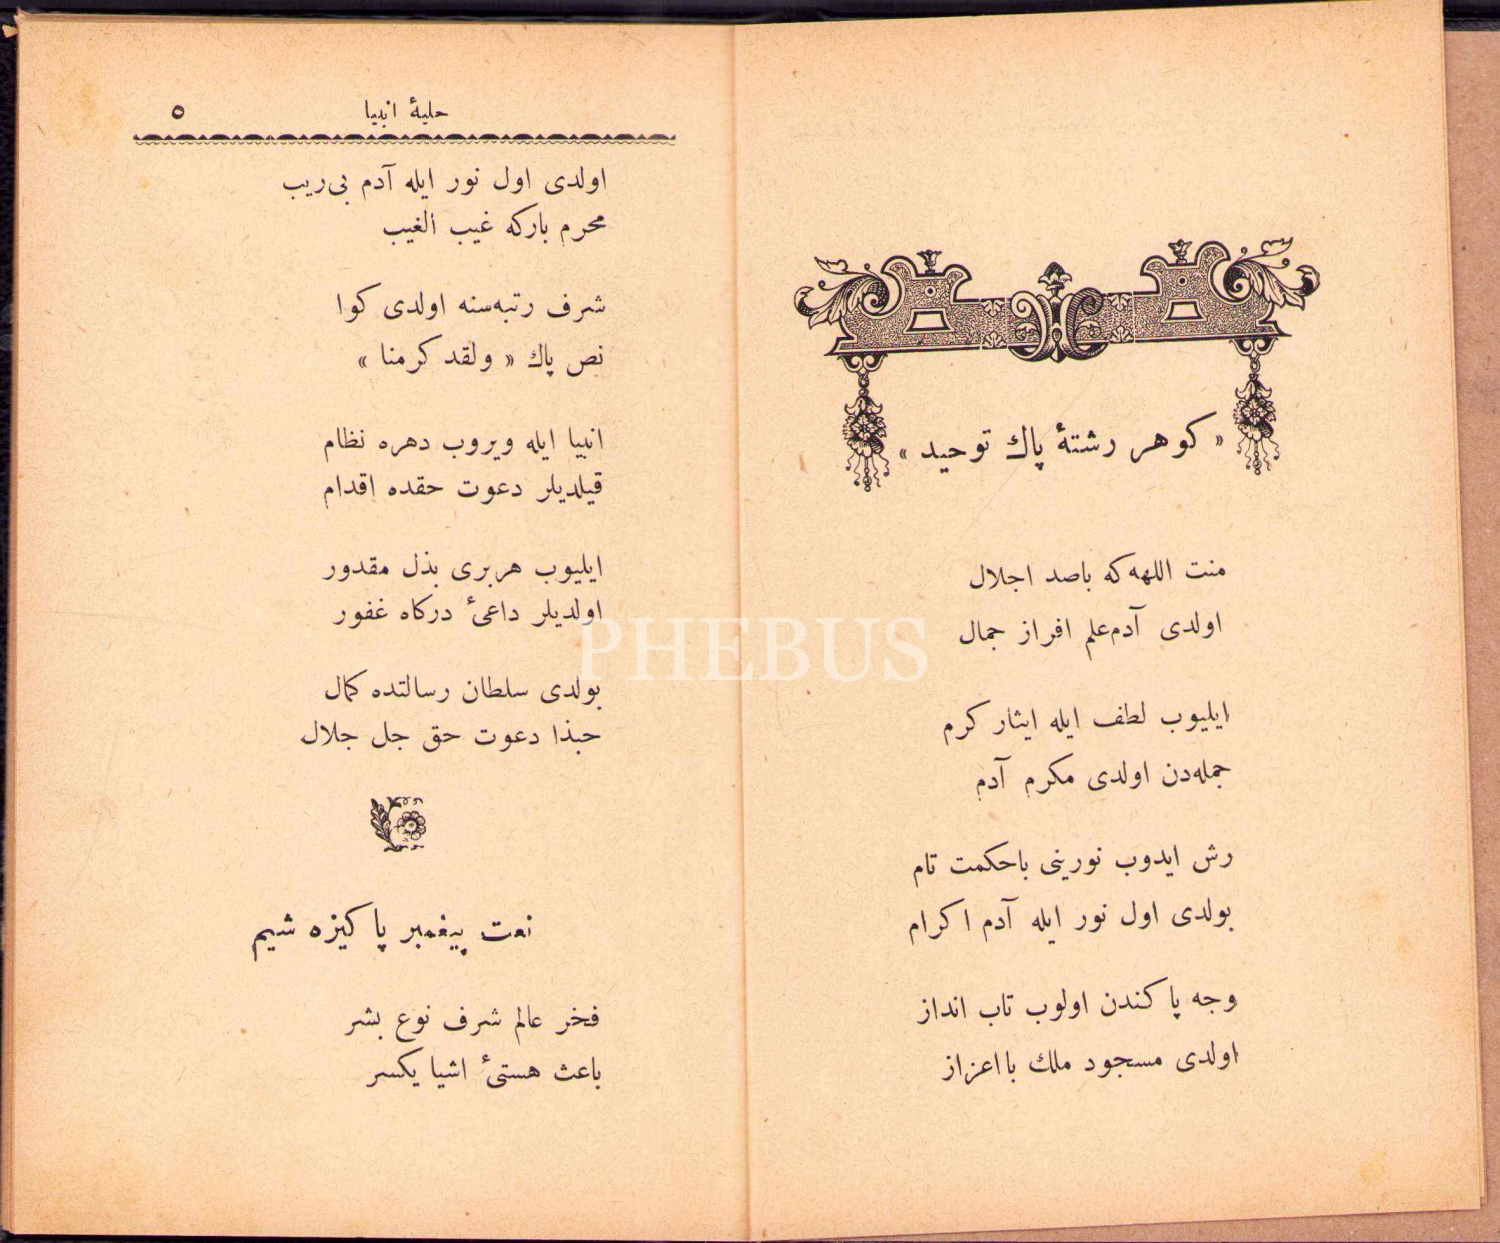 « كوهر رشتۀ پاك توحيد »
منت اللهه كه باصد اجلال
اولدى آدم علم افراز جمال
ايليوب لطف ايله ايثار كرم
جمله‌دن اولدى مكرم آدم
رش ايدوب نورينى باحكمت تام
بولدى اول نور ايله آدم اكرام
وجه پاكندن اولوب تاب انداز
اولدى مسجود ملك بااعزاز
حليۀ انبيا ٥
اولدى اول نور ايله آدم بى‌ريب
محرم باركه غيب الغيب
شرف رتبه‌سنه اولدى كوا
نص پاك « ولقد كرمنا »
انبيا ايله ويروب دهره نظام
قيلديلر دعوت حقده اقدام
ايليوب هربرى بذل مقدور
اولديلر داعئ دركاه غفور
بولدى سلطان رسالتده كمال
حبذا دعوت حق جل جلال
نعت پيغمبر پاكيزه شيم
فخر عالم شرف نوع بشر
باعث هستئ اشيا يكسر
PHEBUS